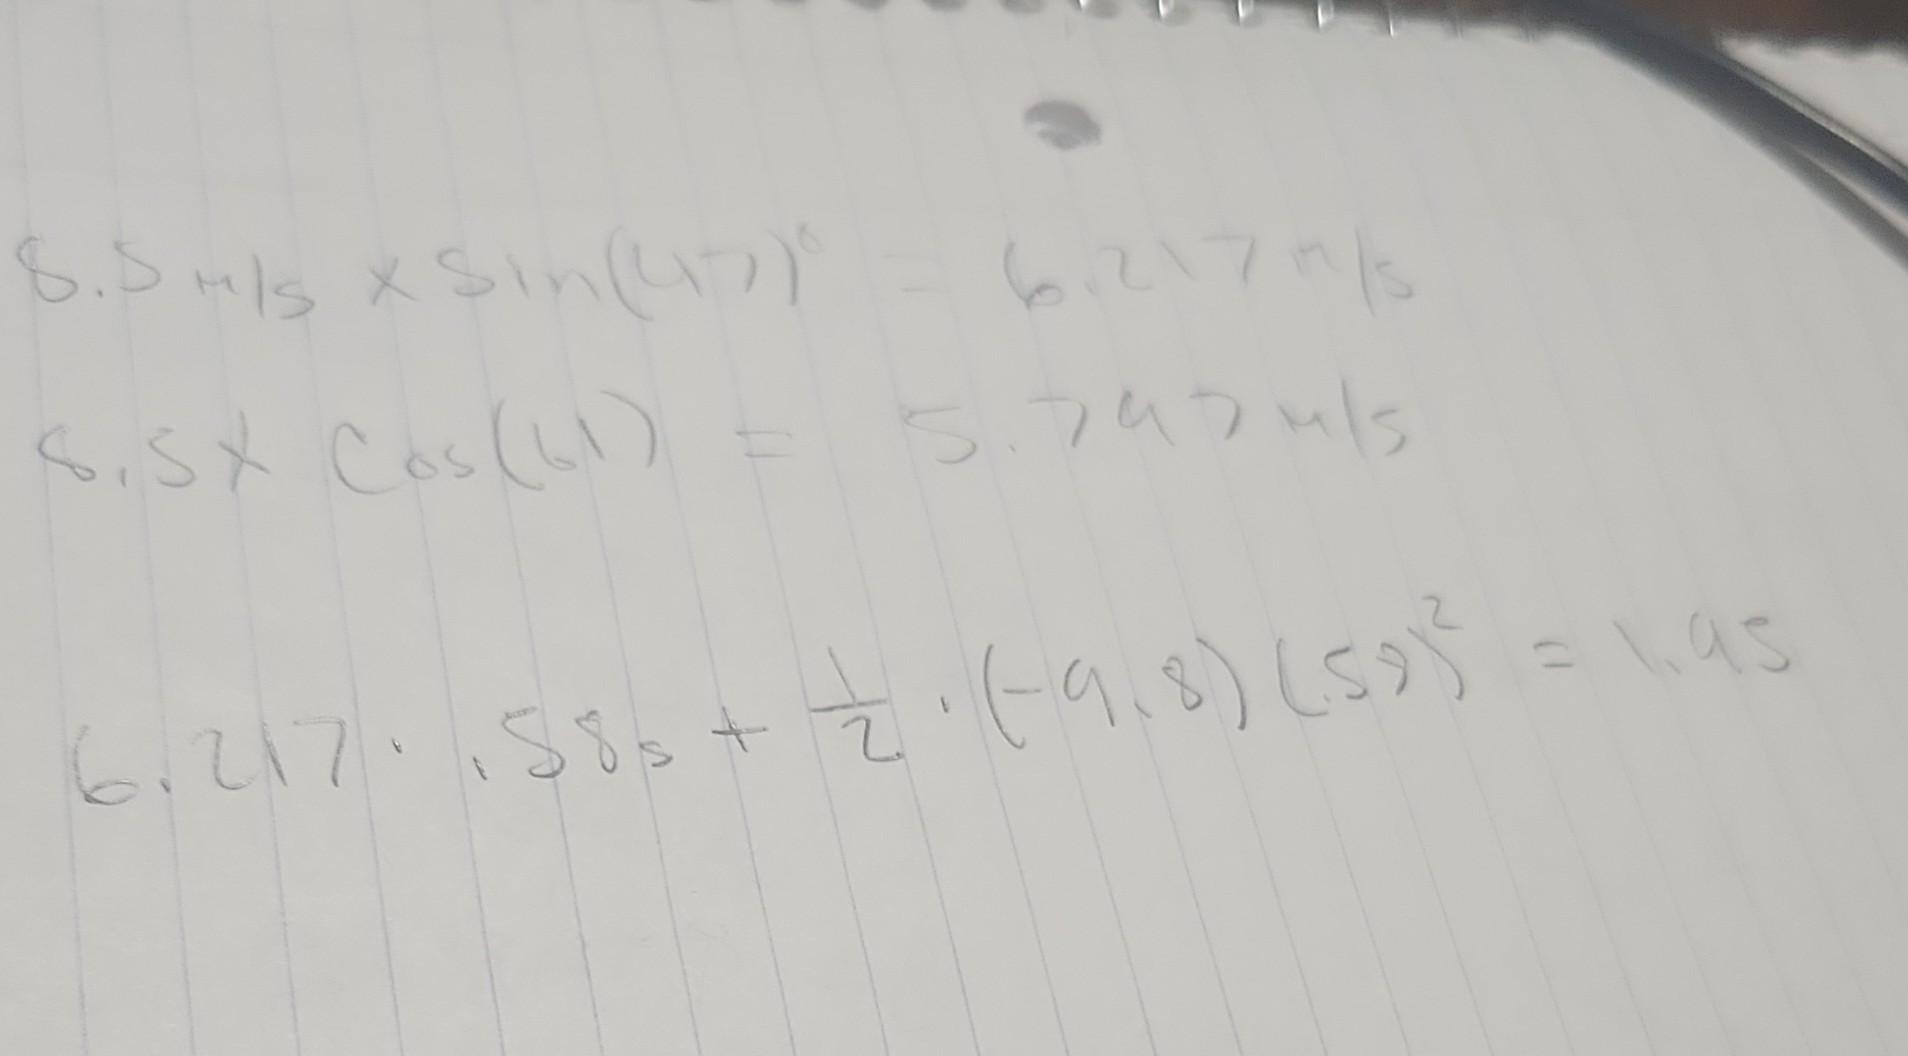 8.5 m/s × sin(47)° = 6.217 m/s
8.5 × cos(47) = 5.797 m/s
6.217 · .58s + 1/2 · (-9.8) (.58)² = 1.95